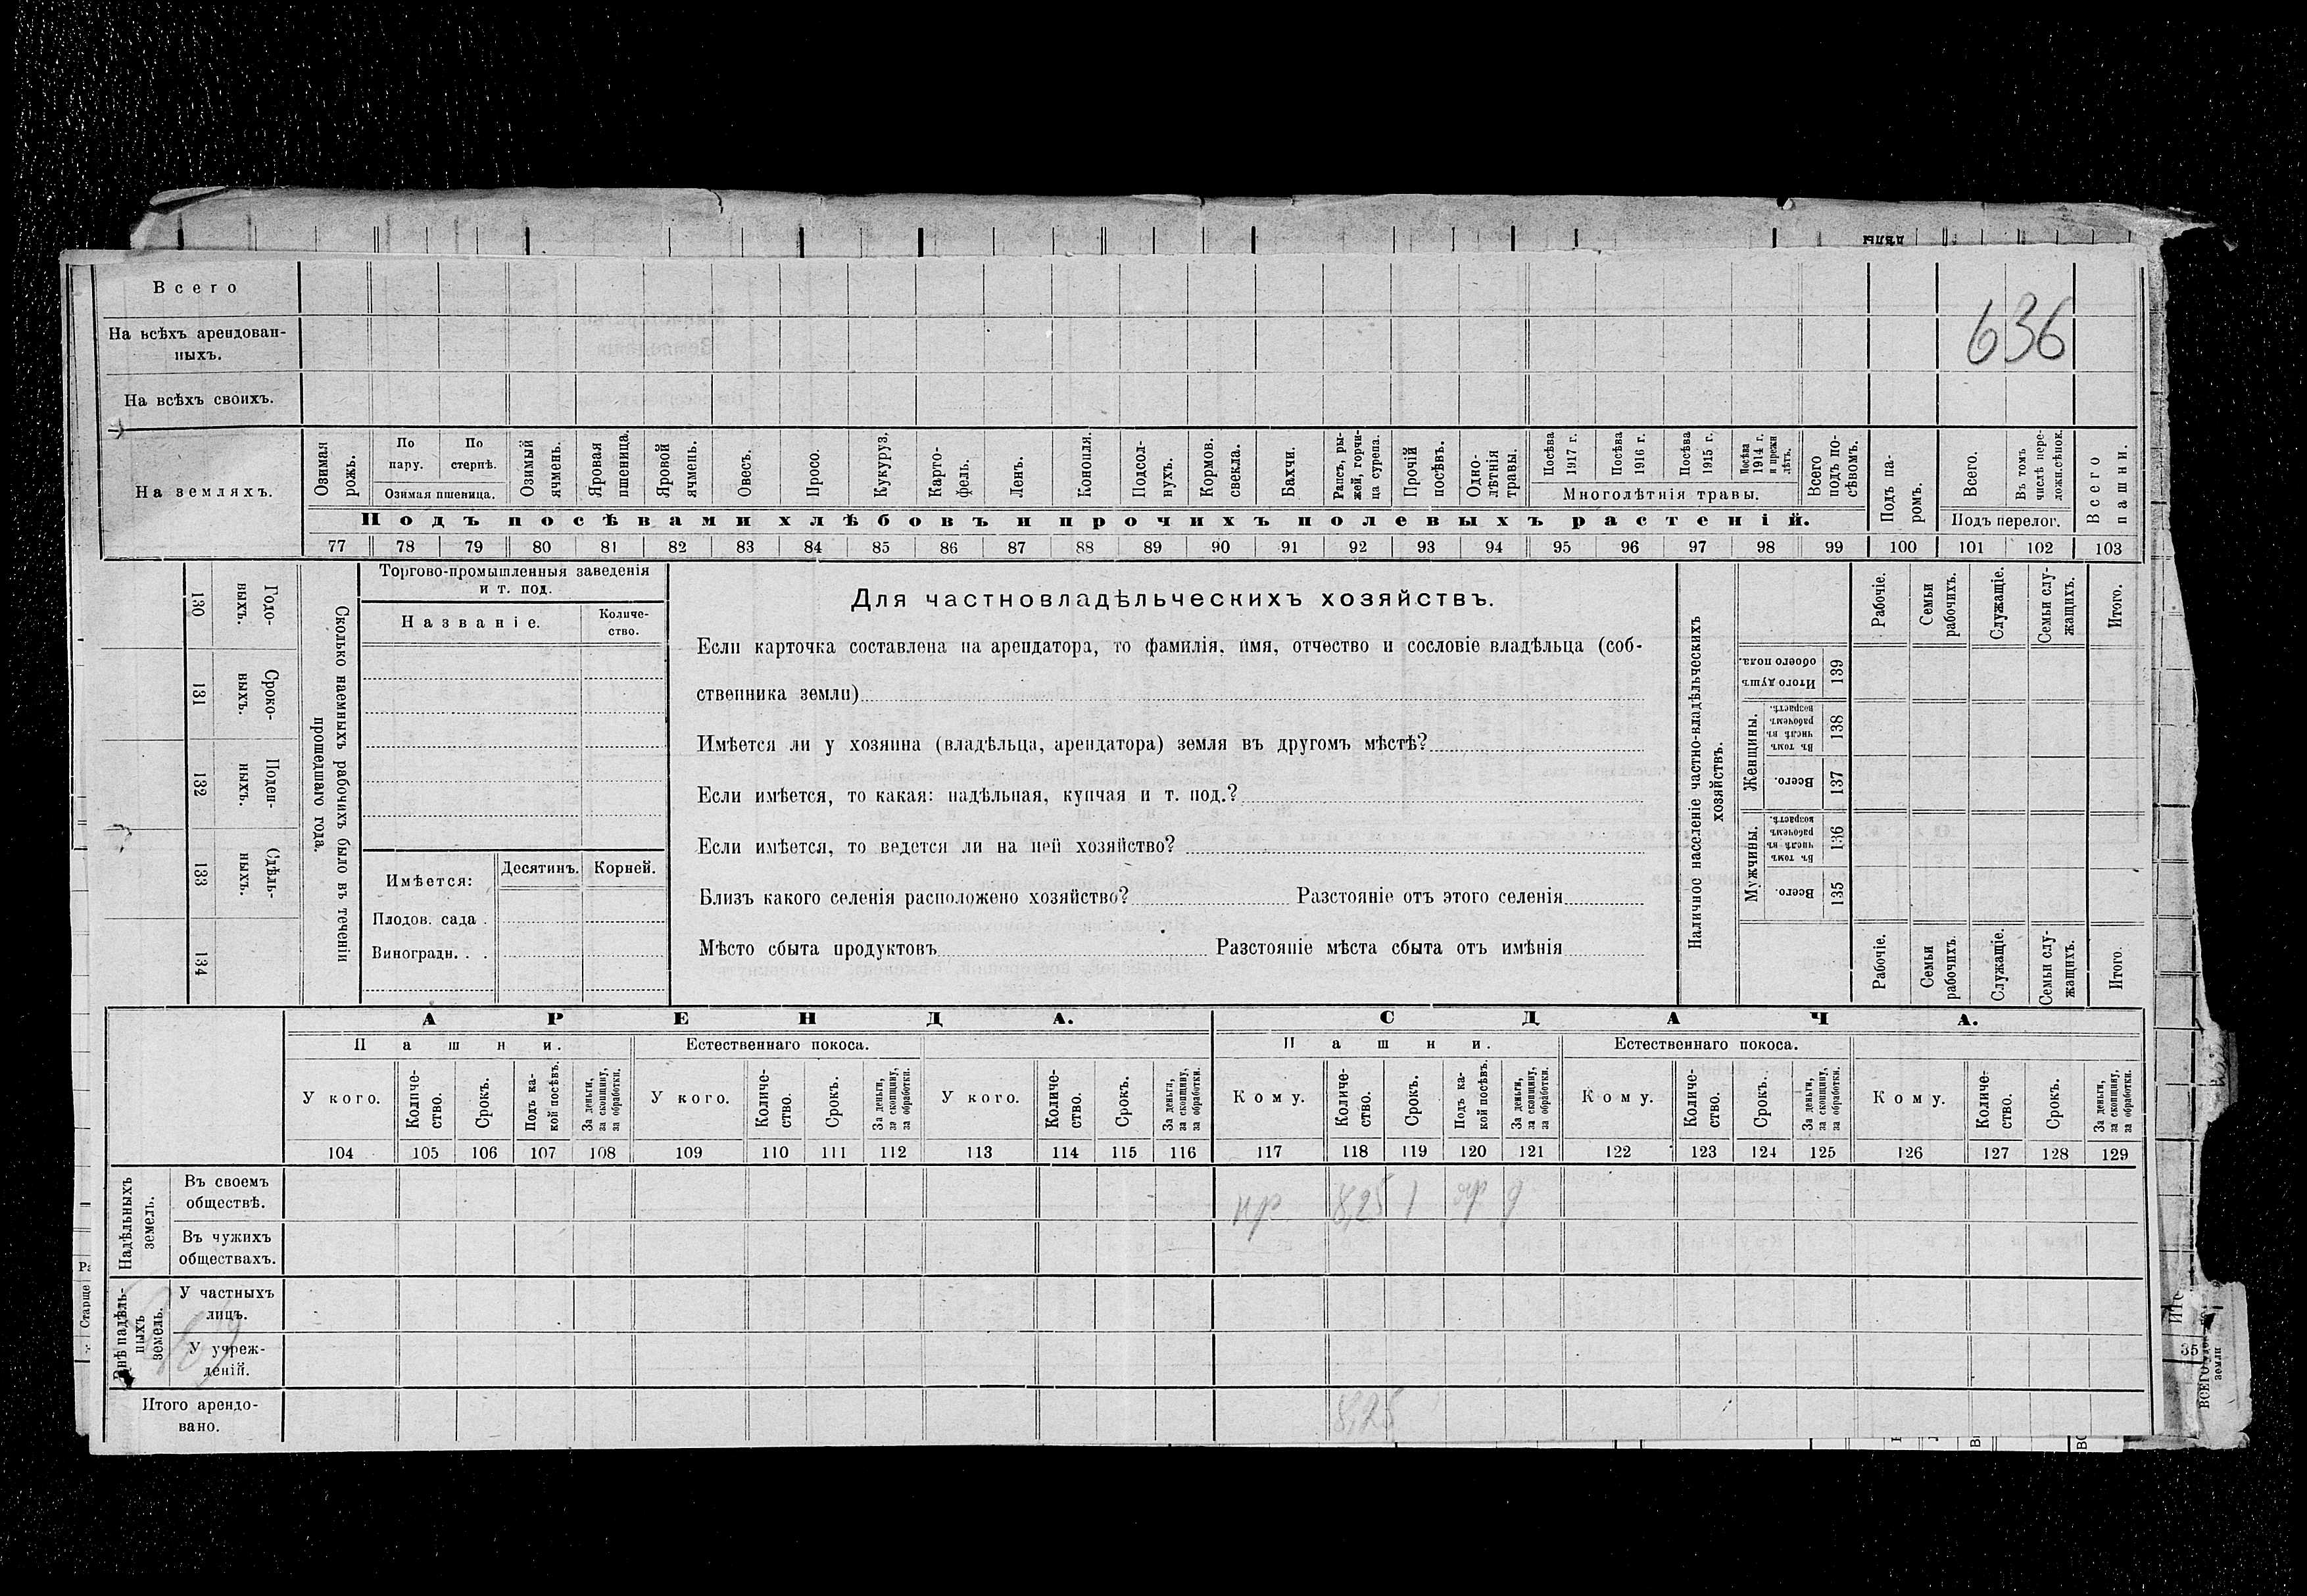 Всего
636
На всѣхъ арендован-
ныхъ.
На всѣхъ своихъ.
На земляхъ.
Озимая рожь.
По пару.
По стернѣ.
Озимая пшеница.
Озимый ячмень.
Яровая пшеница.
Яровой ячмень.
Овесъ.
Просо.
Кукуруз.
Карто-
фель.
Ленъ.
Конопля.
Подсол-
нухъ.
Кормов. свекла.
Бахчи.
Рапсъ, ры-
жей, горчи-
ца сурепа.
Прочій посѣвъ.
Одно-
лѣтнія травы.
Посѣва 1917 г.
Посѣва 1916 г.
Посѣва 1915 г.
Посѣва 1914 г. и прежн лѣтъ.
Многолѣтнія травы.
Всего подъ по-
сѣвомъ.
Подъ па-
ромъ.
Всего.
Въ томъ числѣ пере-
ложн.сѣнок.
Подъ перелог.
Всего пашни.
Подъ посѣвами хлѣбовъ и прочихъ полевыхъ растеній.
77 78 79 80 81 82 83 84 85 86 87 88 89 90 91 92 93 94 95 96 97 98 99 100 101 102 103
130 Годо-
ныхъ.
131 Сроко-
ныхъ.
132 Поден-
ныхъ.
133 Сдѣль-
ныхъ.
134
Сколько наемныхъ рабочихъ было въ теченіи
прошедшаго года.
Торгово-промышленныя заведенія
и т. под.
Названіе.
Количе-
ство.
Имѣется:
Десятинъ.
Корней.
Плодов. сада .
Виноградн. . .
Для частновладѣльческихъ хозяйствъ.
Если карточка составлена на арендатора, то фамилія, имя, отчество и сословіе владѣльца (соб-
ственника земли)
Имѣется ли у хозяина (владѣльца, арендатора) земля въ другомъ мѣстѣ?
Если имѣется, то какая: надѣльная, купчая и т. под.?
Если имѣется, то ведется ли на ней хозяйство?
Близъ какого селенія расположено хозяйство? Разстояніе отъ этого селенія
Мѣсто сбыта продуктовъ Разстояніе мѣста сбыта отъ имѣнія
Наличное населеніе частно-владѣльческихъ
хозяйствъ.
Итого душъ обоего пола. 139
Женщины.
Въ томъ числѣ въ рабочемъ возрастѣ. 138
Всего. 137
Мужчины.
Въ томъ числѣ въ рабочемъ возрастѣ. 136
Всего. 135
Рабочіе.
Семьи рабочихъ.
Служащіе.
Семьи слу-
жащихъ.
Итого.
Рабочіе.
Семьи рабочихъ.
Служащіе.
Семьи слу-
жащихъ.
Итого.
АРЕНДА.
СДАЧА.
Пашни.
Естественнаго покоса.
Пашни.
Естественнаго покоса.
У кого.
Количе-
ство.
Срокъ.
Подъ ка-
кой посѣвъ.
За деньги, за скопщину, за обработки.
У кого.
Количе-
ство.
Срокъ.
За деньги, за скопщину, за обработки.
У кого.
Количе-
ство.
Срокъ.
За деньги, за скопщину, за обработки.
Кому.
Количе-
ство.
Срокъ.
Подъ ка-
кой посѣвъ.
За деньги, за скопщину, за обработки.
Кому.
Количе-
ство.
Срокъ.
За деньги, за скопщину, за обработки.
Кому.
Количе-
ство.
Срокъ.
За деньги, за скопщину, за обработки.
104 105 106 107 108 109 110 111 112 113 114 115 116 117 118 119 120 121 122 123 124 125 126 127 128 129
Надѣльныхъ земель.
Въ своемъ
обществѣ.
8,25 1
Въ чужихъ
обществахъ.
Внѣ надѣль-
ныхъ земель.
У частныхъ
лицъ.
У учреж-
деній.
Итого арендо-
вано.
8,25
Старше
35
ВСЕГО
земли